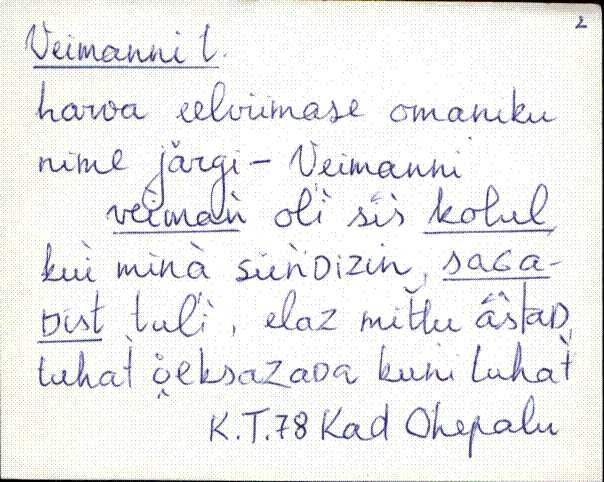 2
Veimanni t.
harva eelviimase omaniku
nime järgi – Veimanni
veiman̆ oli sis kolul,
kui minà sün̆Dizin, saGa-
Dist tuĺi, elaz mittu âstaD,
tuhat̀ ü̬eksazaDa kuni tuhat̀
K.T. 78 Kad Ohepalu